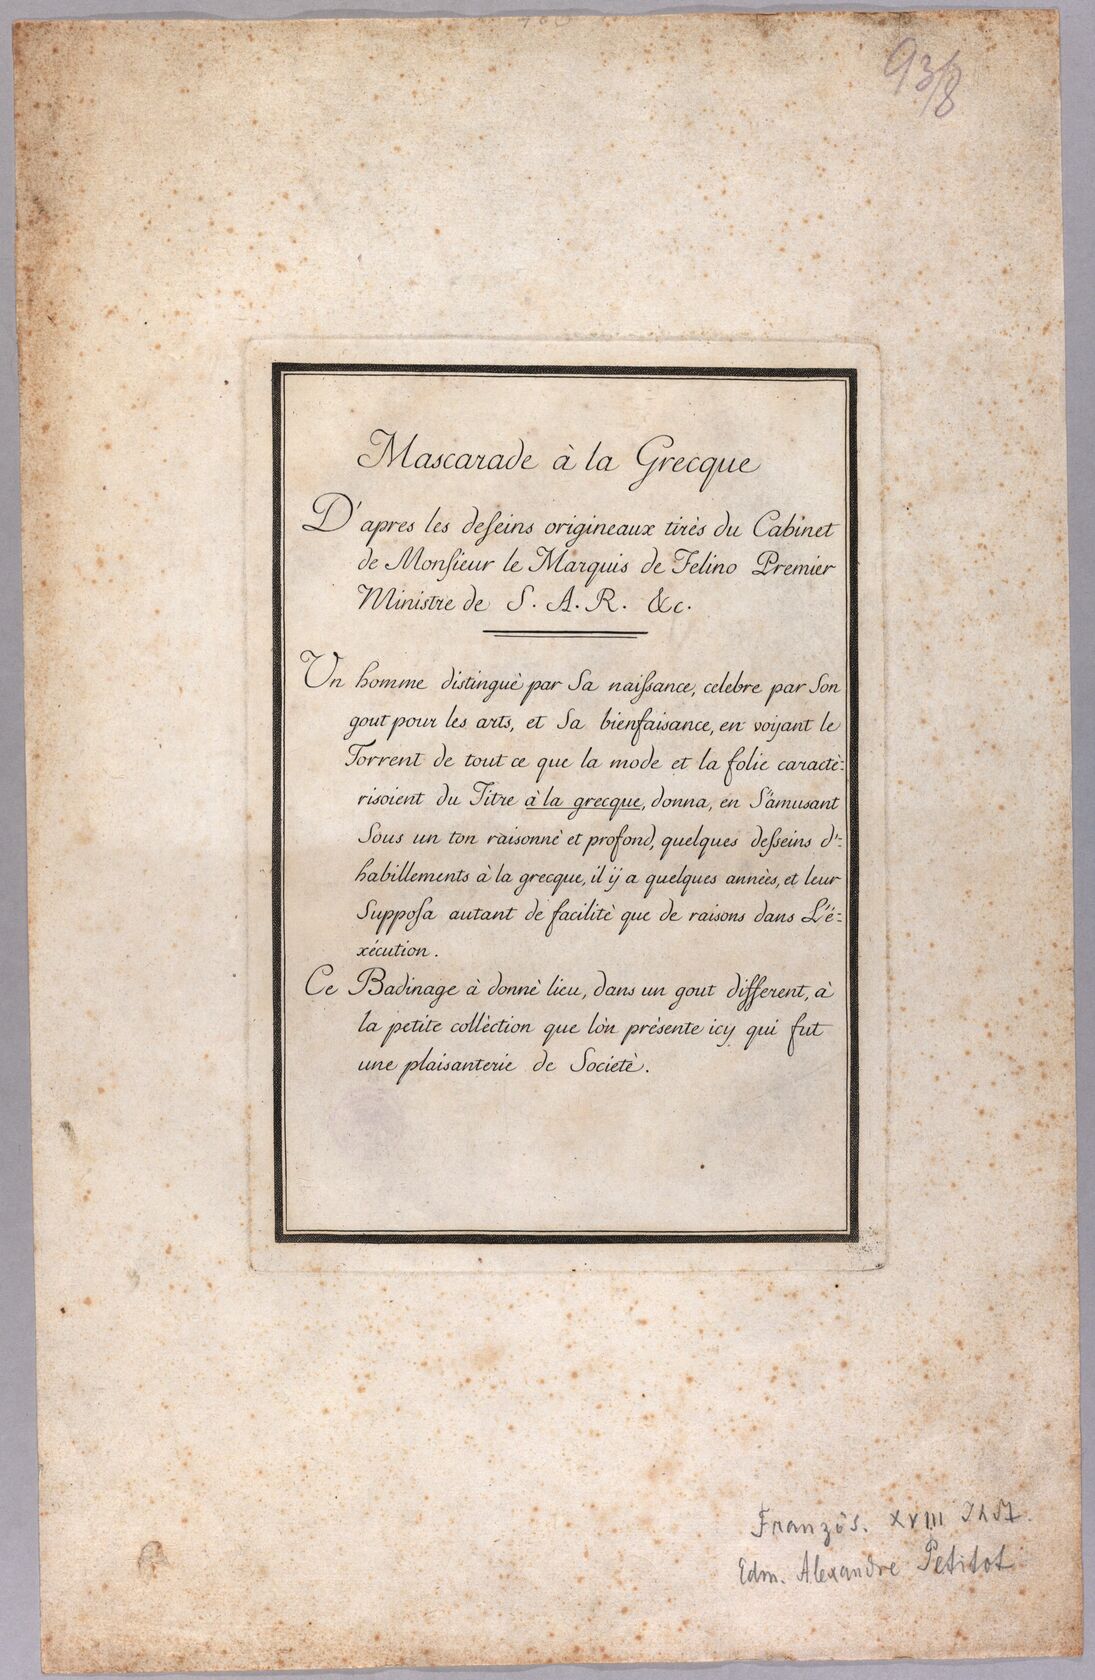 93/8
Mascarade à la Grecque
D'apres les deſeins origineaux tirès du Cabinet
de Monſieur le Marquis de Felino Premier
Ministre de S. A. R. &c.
Un homme distinguè par Sa naiſsance, celebre par Son
gout pour les arts, et Sa bienfaisance, en voyant le
Torrent de tout ce que la mode et la folie caractè:
risoient du Titre à la grecque, donna, en S'amusant
Sous un ton raisonnè et profond, quelques deſseins d':
habillements à la grecque, il ij a quelques annèes, et leur
Suppoſa autant de facilitè que de raisons dans L'é:
xécution.
Ce Badinage à donnè lieu, dans un gout different, à
la petite collèction que lòn prèsente icy qui fut
une plaisanterie de Societè.
Französ. XVIII
Edm. Alexandre Petitot